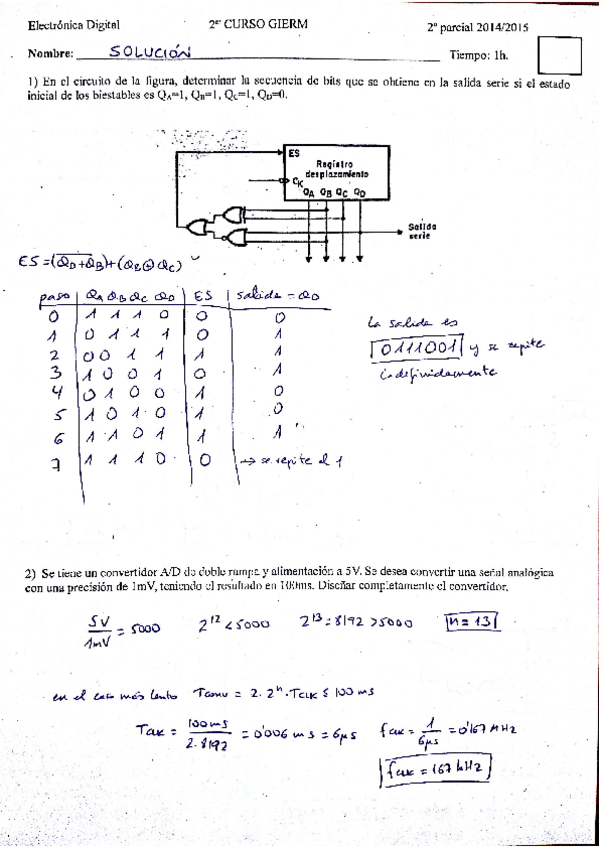 Electrónica Digital 2º CURSO GIERM 2º parcial 2014/2015
Nombre: SOLUCIÓN Tiempo: 1h.
1) En el circuito de la figura, determinar la secuencia de bits que se obtiene en la salida serie si el estado
inicial de los biestables es QA=1, QB=1, QC=1, QD=0.
ES
Registro
desplazamiento
CK
QA QB QC QD
Salida
serie
ES = (\overline{QD+QB})+(QB⊕QC)
paso | QA QB QC QD | ES | salida = QD
0 | 1 1 1 0 | 0 | 0
1 | 0 1 1 1 | 0 | 1
2 | 0 0 1 1 | 1 | 1
3 | 1 0 0 1 | 0 | 1
4 | 0 1 0 0 | 1 | 0
5 | 1 0 1 0 | 1 | 0
6 | 1 1 0 1 | 1 | 1
7 | 1 1 1 0 | 0 | → se repite el 1
La salida es
0111001 y se repite
indefinidamente
2) Se tiene un convertidor A/D de doble rampa y alimentación a 5V. Se desea convertir una señal analógica
con una precisión de 1mV, teniendo el resultado en 100ms. Diseñar completamente el convertidor.
5V/1mV = 5000 2^12 < 5000 2^13 = 8192 > 5000 n = 13
en el caso más lento Tconv = 2·2^n·TCLK ≤ 100 ms
TCLK = 100ms/2·8192 = 0'006 ms = 6μs fCLK = 1/6μs = 0'167 MHz
fCLK = 167 kHz